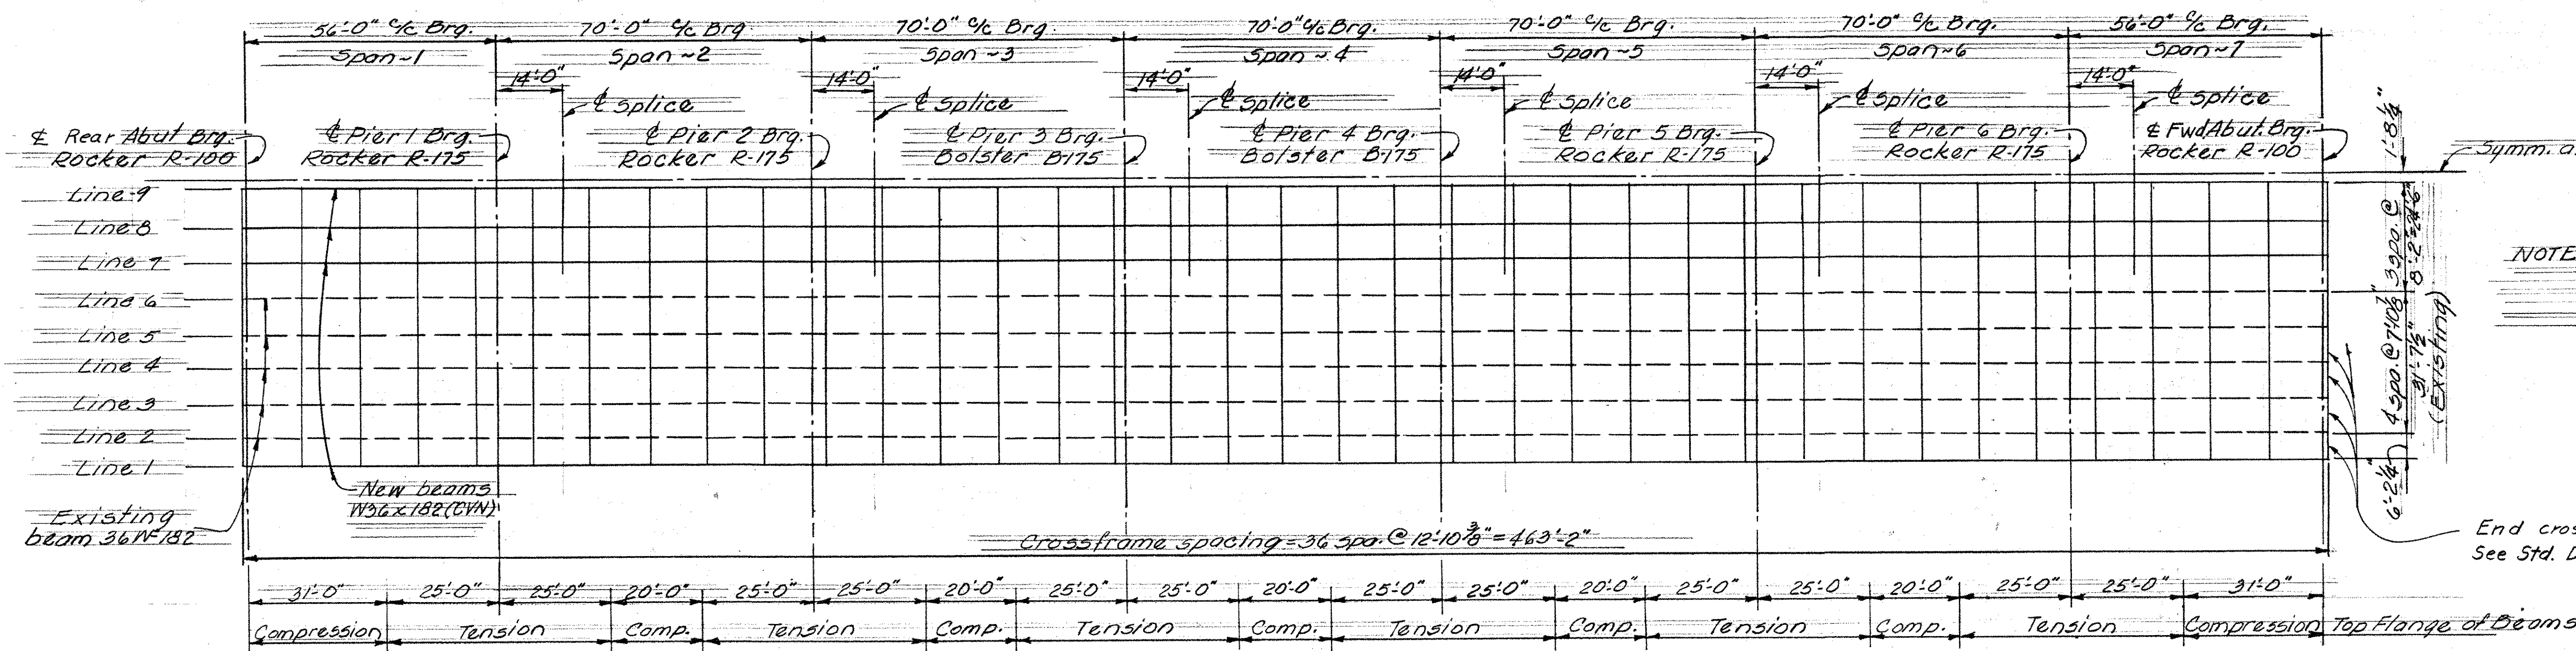 56'-0" c/c Brg. 70'-0" c/c Brg 70'-0" c/c Brg. 70'-0" c/c Brg. 70'-0" c/c Brg. 70'-0" c/c Brg. 56'-0" c/c Brg.
Span~1 Span~2 Span~3 Span~4 Span~5 Span~6 Span~7
14'-0" 14'-0" 14'-0" 14'-0" 14'-0" 14'-0"
℄ Splice ℄ Splice ℄ Splice ℄ Splice ℄ Splice ℄ Splice
℄ Rear Abut Brg.
Rocker R-100
℄ Pier 1 Brg.
Rocker R-175
℄ Pier 2 Brg.
Rocker R-175
℄ Pier 3 Brg.
Bolster B-175
℄ Pier 4 Brg.
Bolster B-175
℄ Pier 5 Brg.
Rocker R-175
℄ Pier 6 Brg.
Rocker R-175
℄ Fwd Abut. Brg.
Rocker R-100
1'-8¼"
Symm. a
Line 9
Line 8
Line 7
Line 6
Line 5
Line 4
Line 3
Line 2
Line 1
3 spa. @
8'-2"=24'-6"
4 spa. @ 7'-10⅞"
31'-7½"
(Existing)
6'-2¼"
NOTE
New beams
W36x182 (CVN)
Existing
beam 36WF182
Crossframe spacing = 36 spa. @ 12'-10⅜" = 463'-2"
End cros
See Std. D
31'-0" 25'-0" 25'-0" 20'-0" 25'-0" 25'-0" 20'-0" 25'-0" 25'-0" 20'-0" 25'-0" 25'-0" 20'-0" 25'-0" 25'-0" 20'-0" 25'-0" 25'-0" 31'-0"
Compression Tension Comp. Tension Comp. Tension Comp. Tension Comp. Tension Comp. Tension Compression Top Flange of Beams